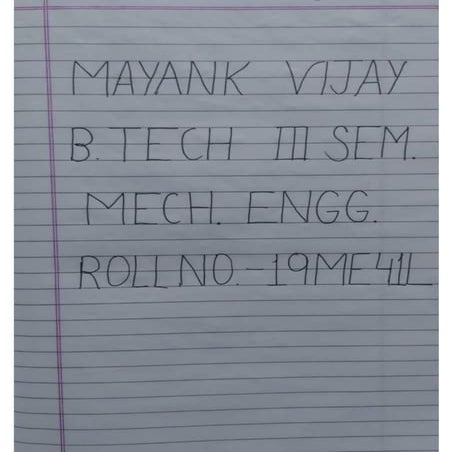 MAYANK VIJAY
B. TECH III SEM.
MECH. ENGG.
ROLL NO.-19ME41L